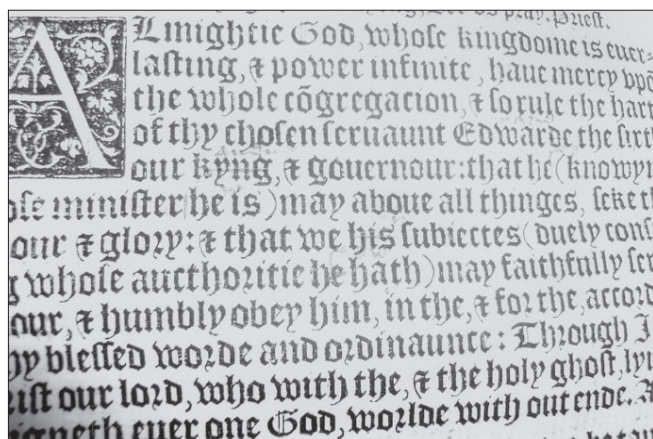 Let vs pray. Prieſt.
ALmightie God, whoſe kingdome is euer=
laſting, ⁊ power infinite, haue mercy vpõ
the whole cõgregacion, ⁊ ſo rule the hart
of thy choſen ſeruaunt Edwarde the ſixt
our kyng, ⁊ gouernour: that he (knowyn
oſe miniſter he is) may aboue all thinges, ſeke t
our ⁊ glory: ⁊ that we his ſubiectes (duely conſ
g whoſe aucthoritie he hath) may faithfully ſer
our, ⁊ humbly obey him, in the, ⁊ for the, accord
hy bleſſed worde and ordinaunce: Through J
riſt our lord, who with the, ⁊ the holy ghoſt, lyu
igneth euer one God, worlde with out ende. A